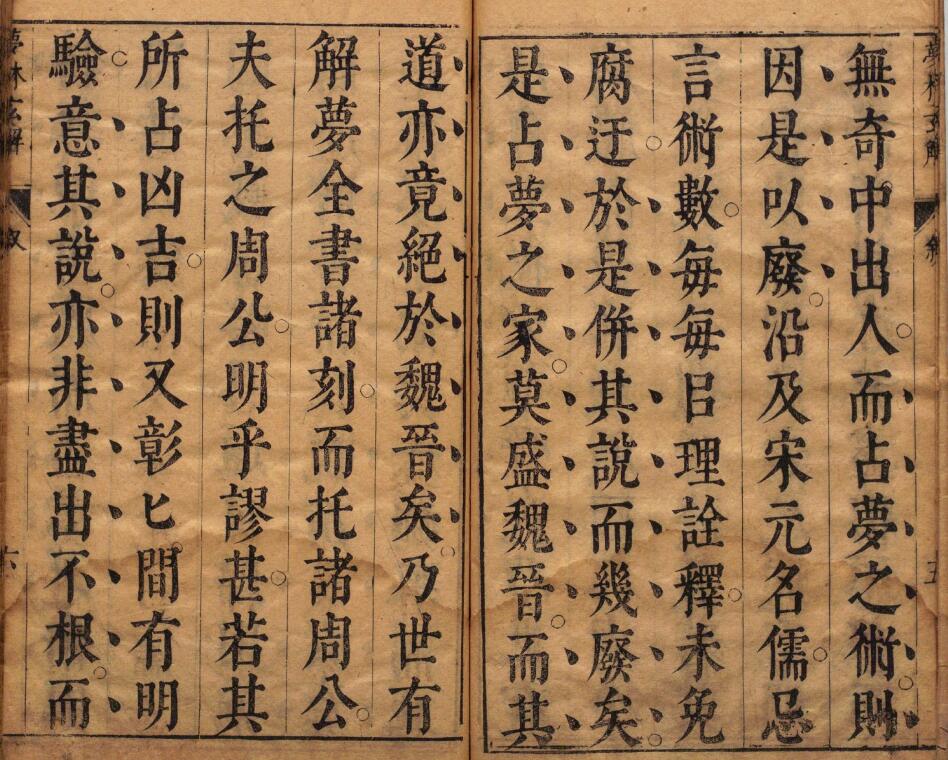 無奇中出人而占夢之術則
因是以廢沿及宋元名儒忌
言術數每每㠯理詮釋未免
腐迂於是併其說而幾廢矣
是占夢之家莫盛魏晉而其
道亦竟絕於魏晉矣乃世有
解夢全書諸刻而托諸周公
夫托之周公明乎謬甚若其
所占凶吉則又彰匕間有明
驗意其說亦非盡出不根而
夢林玄解
敘
五
夢林玄解
敘
六